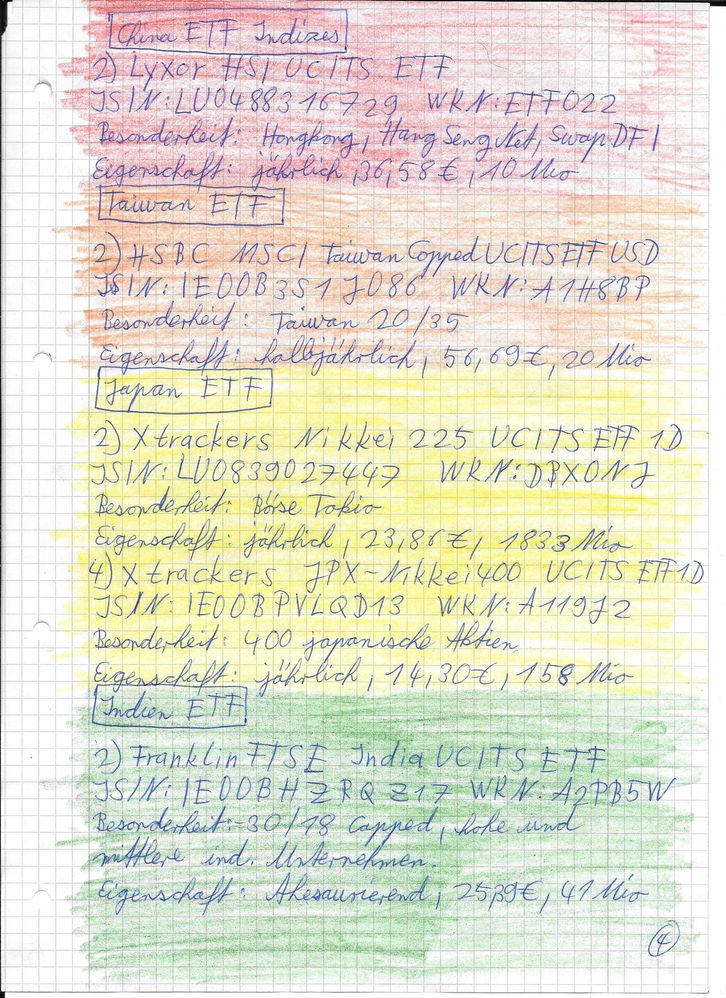 China ETF Indizes
2) Lyxor HSI UCITS ETF
ISIN: LU0488316729 WKN: ETF022
Besonderheit: Hongkong, Hang Seng Net, Swap DFI
Eigenschaft: jährlich, 36,58€, 10 Mio
Taiwan ETF
2) HSBC MSCI Taiwan Capped UCITS ETF USD
ISIN: IE00B3S1J086 WKN: A1H8BP
Besonderheit: Taiwan 20/35
Eigenschaft: halbjährlich, 56,69€, 20 Mio
Japan ETF
2) Xtrackers Nikkei 225 UCITS ETF 1D
ISIN: LU0839027447 WKN: DBX0NJ
Besonderheit: Börse Tokio
Eigenschaft: jährlich, 23,86€, 1833 Mio
4) Xtrackers JPX-Nikkei 400 UCITS ETF 1D
ISIN: IE00BPVLQD13 WKN: A119J2
Besonderheit: 400 japanische Aktien
Eigenschaft: jährlich, 14,30€, 158 Mio
Indien ETF
2) Franklin FTSE India UCITS ETF
ISIN: IE00BHZRQZ17 WKN: A2PB5W
Besonderheit:-30/18 Capped, hohe und
mittlere ind. Unternehmen.
Eigenschaft: Ahesaurierend, 25,39€, 41 Mio
4